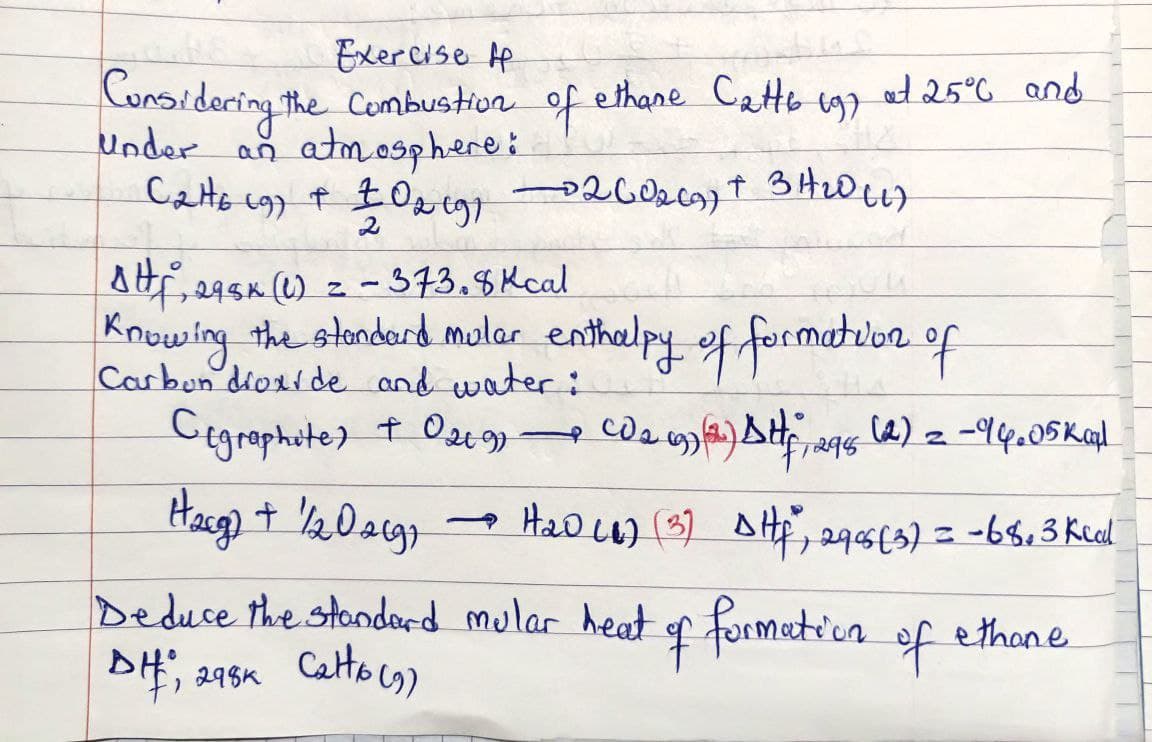 Exercise 4
Considering the Combustion of ethane C2H6 (g) at 25°C and
Under an atmosphere:
C2H6 (g) + 7/2 O2 (g) → 2CO2(g) + 3H2O (l)
ΔHf°, 298K (1) = -373.8Kcal
Knowing the standard molar enthalpy of formation of
Carbon dioxide and water:
C(graphite) + O2(g) → CO2 (g) (2) ΔHf°, 298 (2) = -94.05Kcal
H2(g) + 1/2 O2(g) → H2O (l) (3) ΔHf°, 298(3) = -68.3 Kcal
Deduce the standard molar heat of formation of ethane
ΔHf°, 298K C2H6 (g)